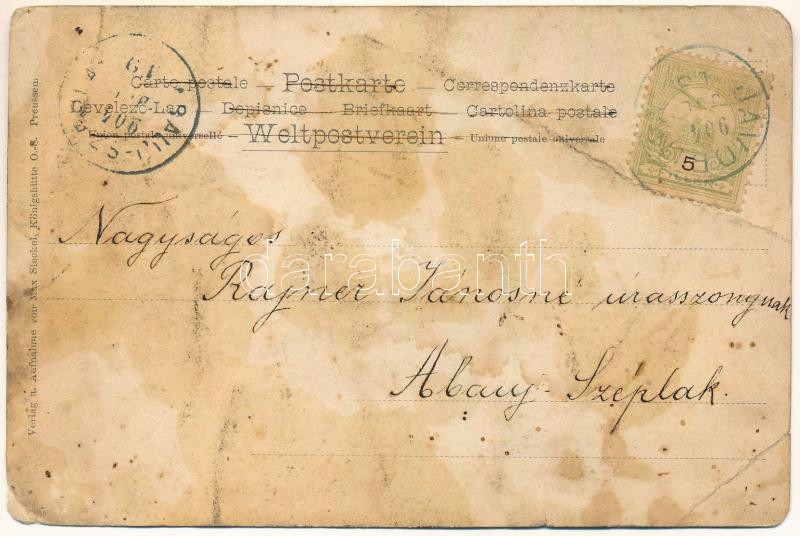 Carte postale — Postkarte — Correspondenzkarte
Levelező-Lap — Dopisnice — Briefkaart — Cartolina postale
Union postale universelle — Weltpostverein — Unione postale universale
5
Nagyságos
Rajner Jánosné úrasszonynak
Abauj-Szeplak.
Verlag u. Aufnahme von Max Steckel, Königshütte O.-S. Preussen.
darabanth